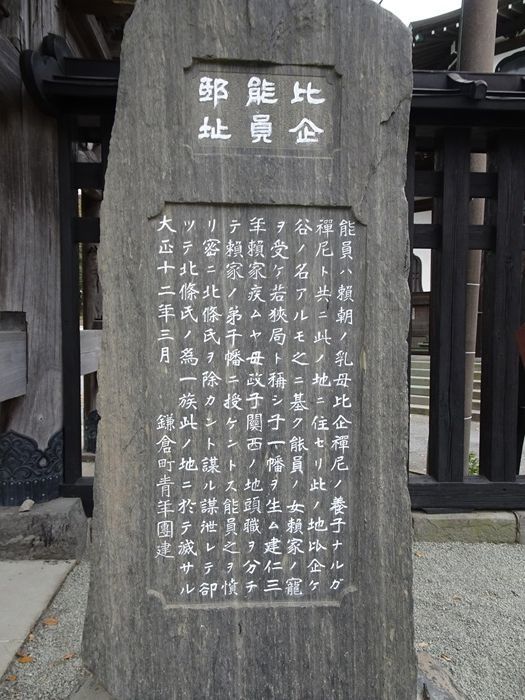 比企
能員
邸址
能員ハ頼朝ノ乳母比企禪尼ノ養子ナルガ
禪尼ト共ニ此ノ地ニ住セリ此ノ地比企ケ
谷ノ名アルモ之ニ基ク能員ノ女頼家ノ寵
ヲ受ケ若狹局ト稱シ子一幡ヲ生ム建仁三
年頼家疾ムヤ母政子關西ノ地頭職ヲ分チ
テ頼家ノ弟千幡ニ授ケントス能員之ヲ憤
リ密ニ北條氏ヲ除カント謀ル謀泄レテ却
ツテ北條氏ノ為一族此ノ地ニ於テ滅サル
大正十二年三月 鎌倉町青年團建